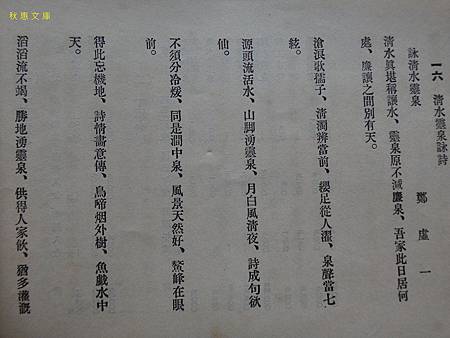 秋惠文庫
一六 清水靈泉詠詩
詠清水靈泉 鄭虛一
清水真堪稱讓水、靈泉原不減廉泉、吾家此日居何
處、廉讓之間別有天。
滄浪歌儒子、清濁辨當前、纓足從人濯、泉聲當七
絃。
源頭流活水、山脚湧靈泉、月白風清夜、詩成句欲
仙。
不須分冷煖、同是澗中泉、風景天然好、鰲峰在眼
前。
得此忘機地、詩情畫意傳、鳥啼烟外樹、魚戲水中
天。
滔滔流不竭、勝地湧靈泉、供得人家飲、猶多灌溉